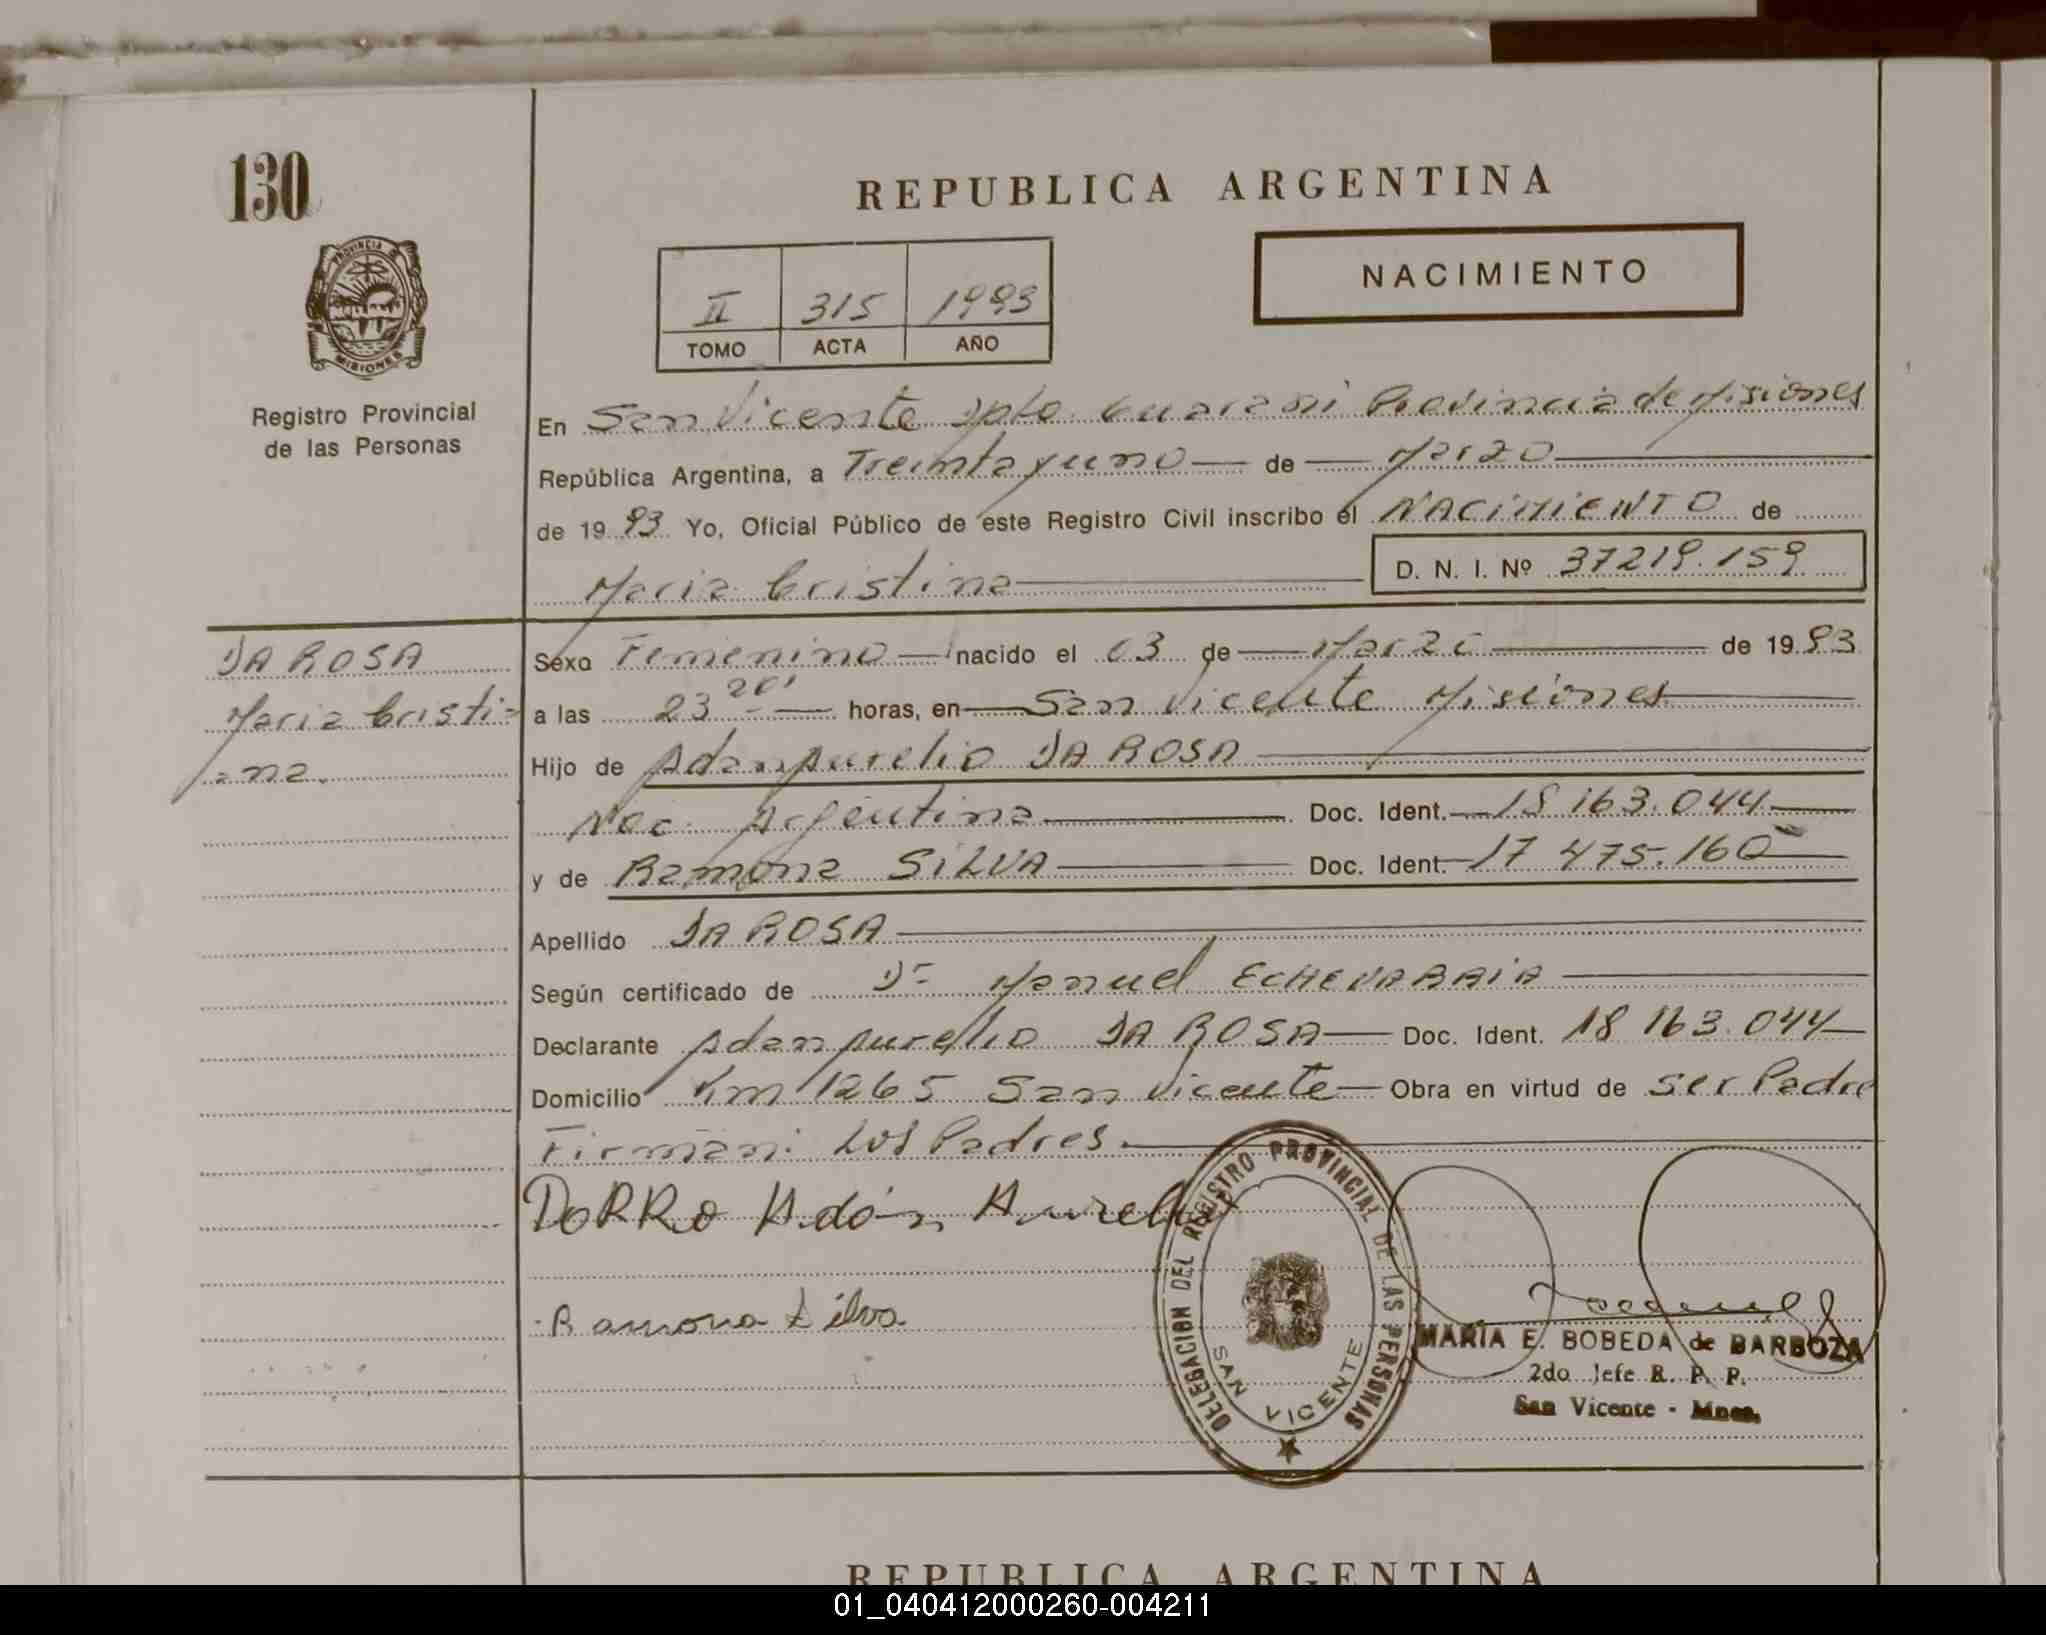 130
REPUBLICA ARGENTINA
PROVINCIA DE
MISIONES
Registro Provincial
de las Personas
II 315 1993
TOMO ACTA AÑO
NACIMIENTO
En San Vicente Dpto. Guarani Provincia de Misiones
República Argentina, a Treinta y uno de Marzo
de 1993 Yo, Oficial Público de este Registro Civil inscribo el NACIMIENTO de
Maria Cristina D. N. I. Nº 37219.159
DA ROSA
Maria Cristi-
na.
Sexo Femenino nacido el 03 de Marzo de 1993
a las 23 20' horas, en San Vicente Misiones
Hijo de Adan Aurelio DA ROSA
Nac. Argentina Doc. Ident. 18 163.044
y de Ramona SILVA Doc. Ident. 17 475.160
Apellido DA ROSA
Según certificado de Dr Manuel ECHEVARRIA
Declarante Adan Aurelio DA ROSA Doc. Ident. 18 163.044
Domicilio Km 1265 San Vicente Obra en virtud de ser Padre
Firman: Los Padres.
DoRRo Adán Aurelio
Ramona Silva
DELEGACION DEL REGISTRO PROVINCIAL DE LAS PERSONAS
SAN VICENTE
MARIA E. BOBEDA de BARBOZA
2do Jefe R. P. P.
San Vicente - Mnes.
REPUBLICA ARGENTINA
01_040412000260-004211